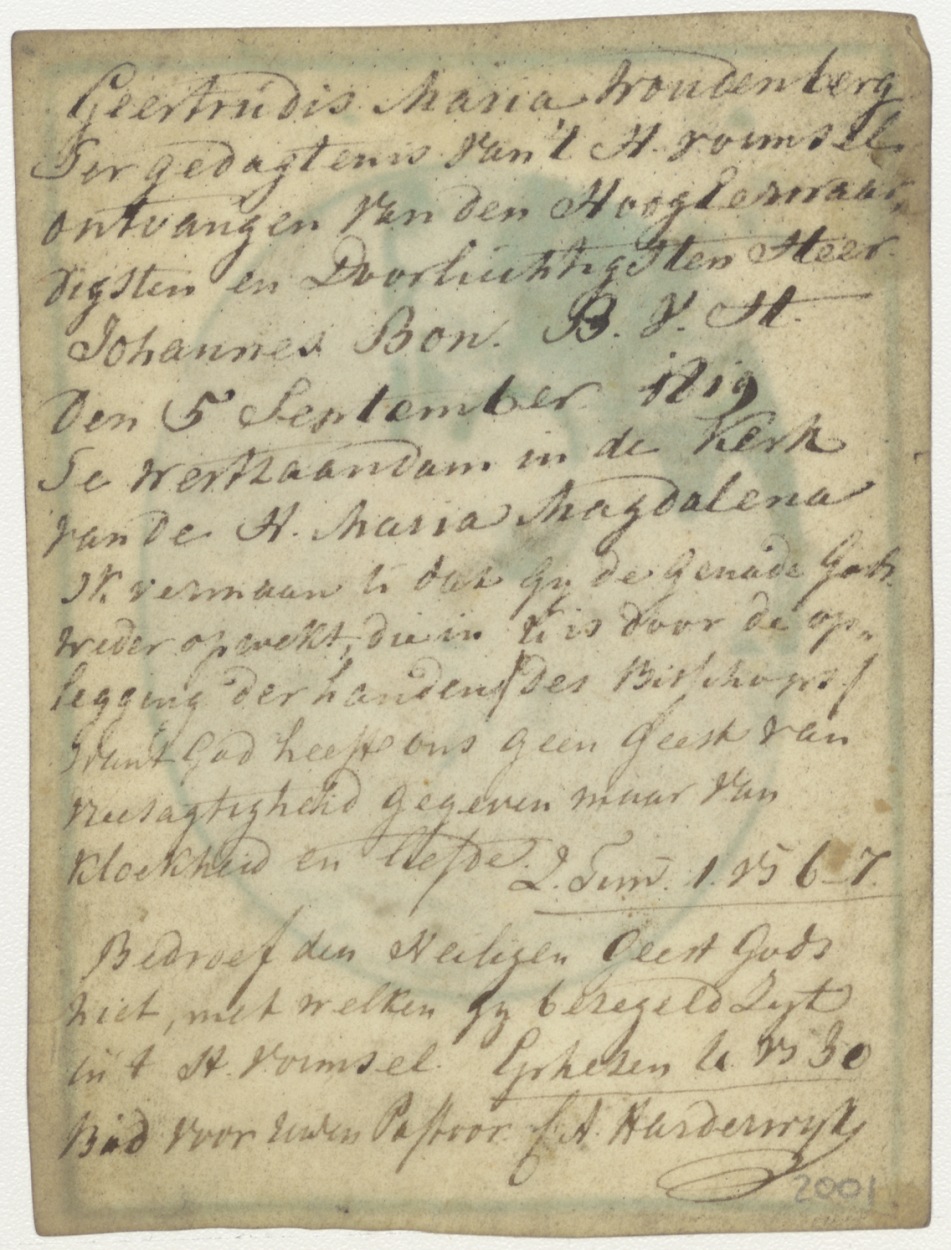 Geertrudis Maria Woudenberg
Ter gedagtenis van't H. vormsel
ontvangen van den HoogEerwaar„
digsten en Doorluchtigsten Heer
Johannes Bon. B. V. H.
Den 5 September 1819
Te Westzaandam in de Kerk
van de H. Maria Magdalena
Ik vermaan U dat gy de genade Gods
weder opwekt, die in U is door de op„
legging der handen/des Bisschops/
want God heeft ons geen Geest van
vreesagtigheid gegeven maar van
kloekheid en liefde. 2. Tim. 1. vs 6-7.
Bedroef den Heiligen Geest Gods
niet, met welken gy bezegeld Zyt
in 't H. Vormsel. Ephezen 4. vs 30
Bid voor uwen Pastoor A. Harderwyk
2001